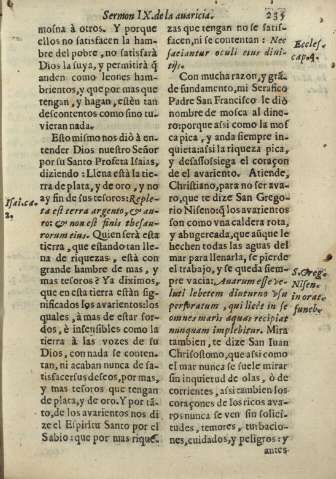 Sermon IX. de la auaricia.
235
mosna à otros. Y porque
ellos no satisfacen la ham-
bre del pobre, no satisfarà
Dios la suya, y permitirà q̃
anden como leones ham-
brientos, y que por mas que
tengan, y hagan, estèn tan
descontentos como sino tu-
vieran nada.
Esto mismo nos diò à en-
tender Dios nuestro Señor
por su Santo Profeta Isaias,
diziendo: Llena està la tie-
rra de plata, y de oro, y no
ay fin de sus tesoros: Reple-
ta est terra argento, & au-
ro: & non est finis thesau-
rorum eius. Quien serà esta
tierra, que estando tan lle-
na de riquezas, està con
grande hambre de mas, y
mas tesoros? Ya diximos,
que en esta tierra estàn sig-
nificados los avarientos: los
quales, à mas de estar for-
dos, è insensibles como la
tierra à las vozes de su
Dios, con nada se conten-
tan, ni acaban nunca de sa-
tisfacer sus deseos, por mas,
y mas tesoros que tengan
de plata, y de oro. Y por tã-
to, de los avarientos nos di-
ze el Espiritu Santo por el
Sabio: que por mas rique-
Isai. ca.
2.
zas que tengan no se satis-
facen, ni se contentan: Nec
saciantur oculi eius diui-
tijs.
Con mucha razon, y grã-
de fundamento, mi Serafico
Padre San Francisco le diò
nombre de mosca al dine-
ro: porque assi como la mos-
ca pica, y anda siempre in-
quieta: assi la riqueza pica,
y desassossiega el coraçon
de el avariento. Atiende,
Christiano, para no ser ava-
ro, que te dize San Grego-
rio Niseno: q̃ los avarientos
son como vna caldera rota,
y ahugereada, que aũque le
hechen todas las aguas del
mar para llenarla, se pierde
el trabajo, y se queda siem-
pre vacia: Auarum esse ve-
luti lebetem diuturno vsu
perforatum, qui licèt in se
omnes maris aquas recipiat
nunquam implebitur. Mira
tambien, te dize San Iuan
Chrisostomo, que assi como
el mar nunca se suele mirar
sin inquietud de olas, ò de
corrientes, assi tambien los
coraçones de los ricos ava-
ros nunca se ven sin solici-
tudes, temores, turbacio-
nes, cuidados, y peligros: y
antes
Eccles.
cap. 4.
S. Greg.
Nisen-
in orat.
funeb.